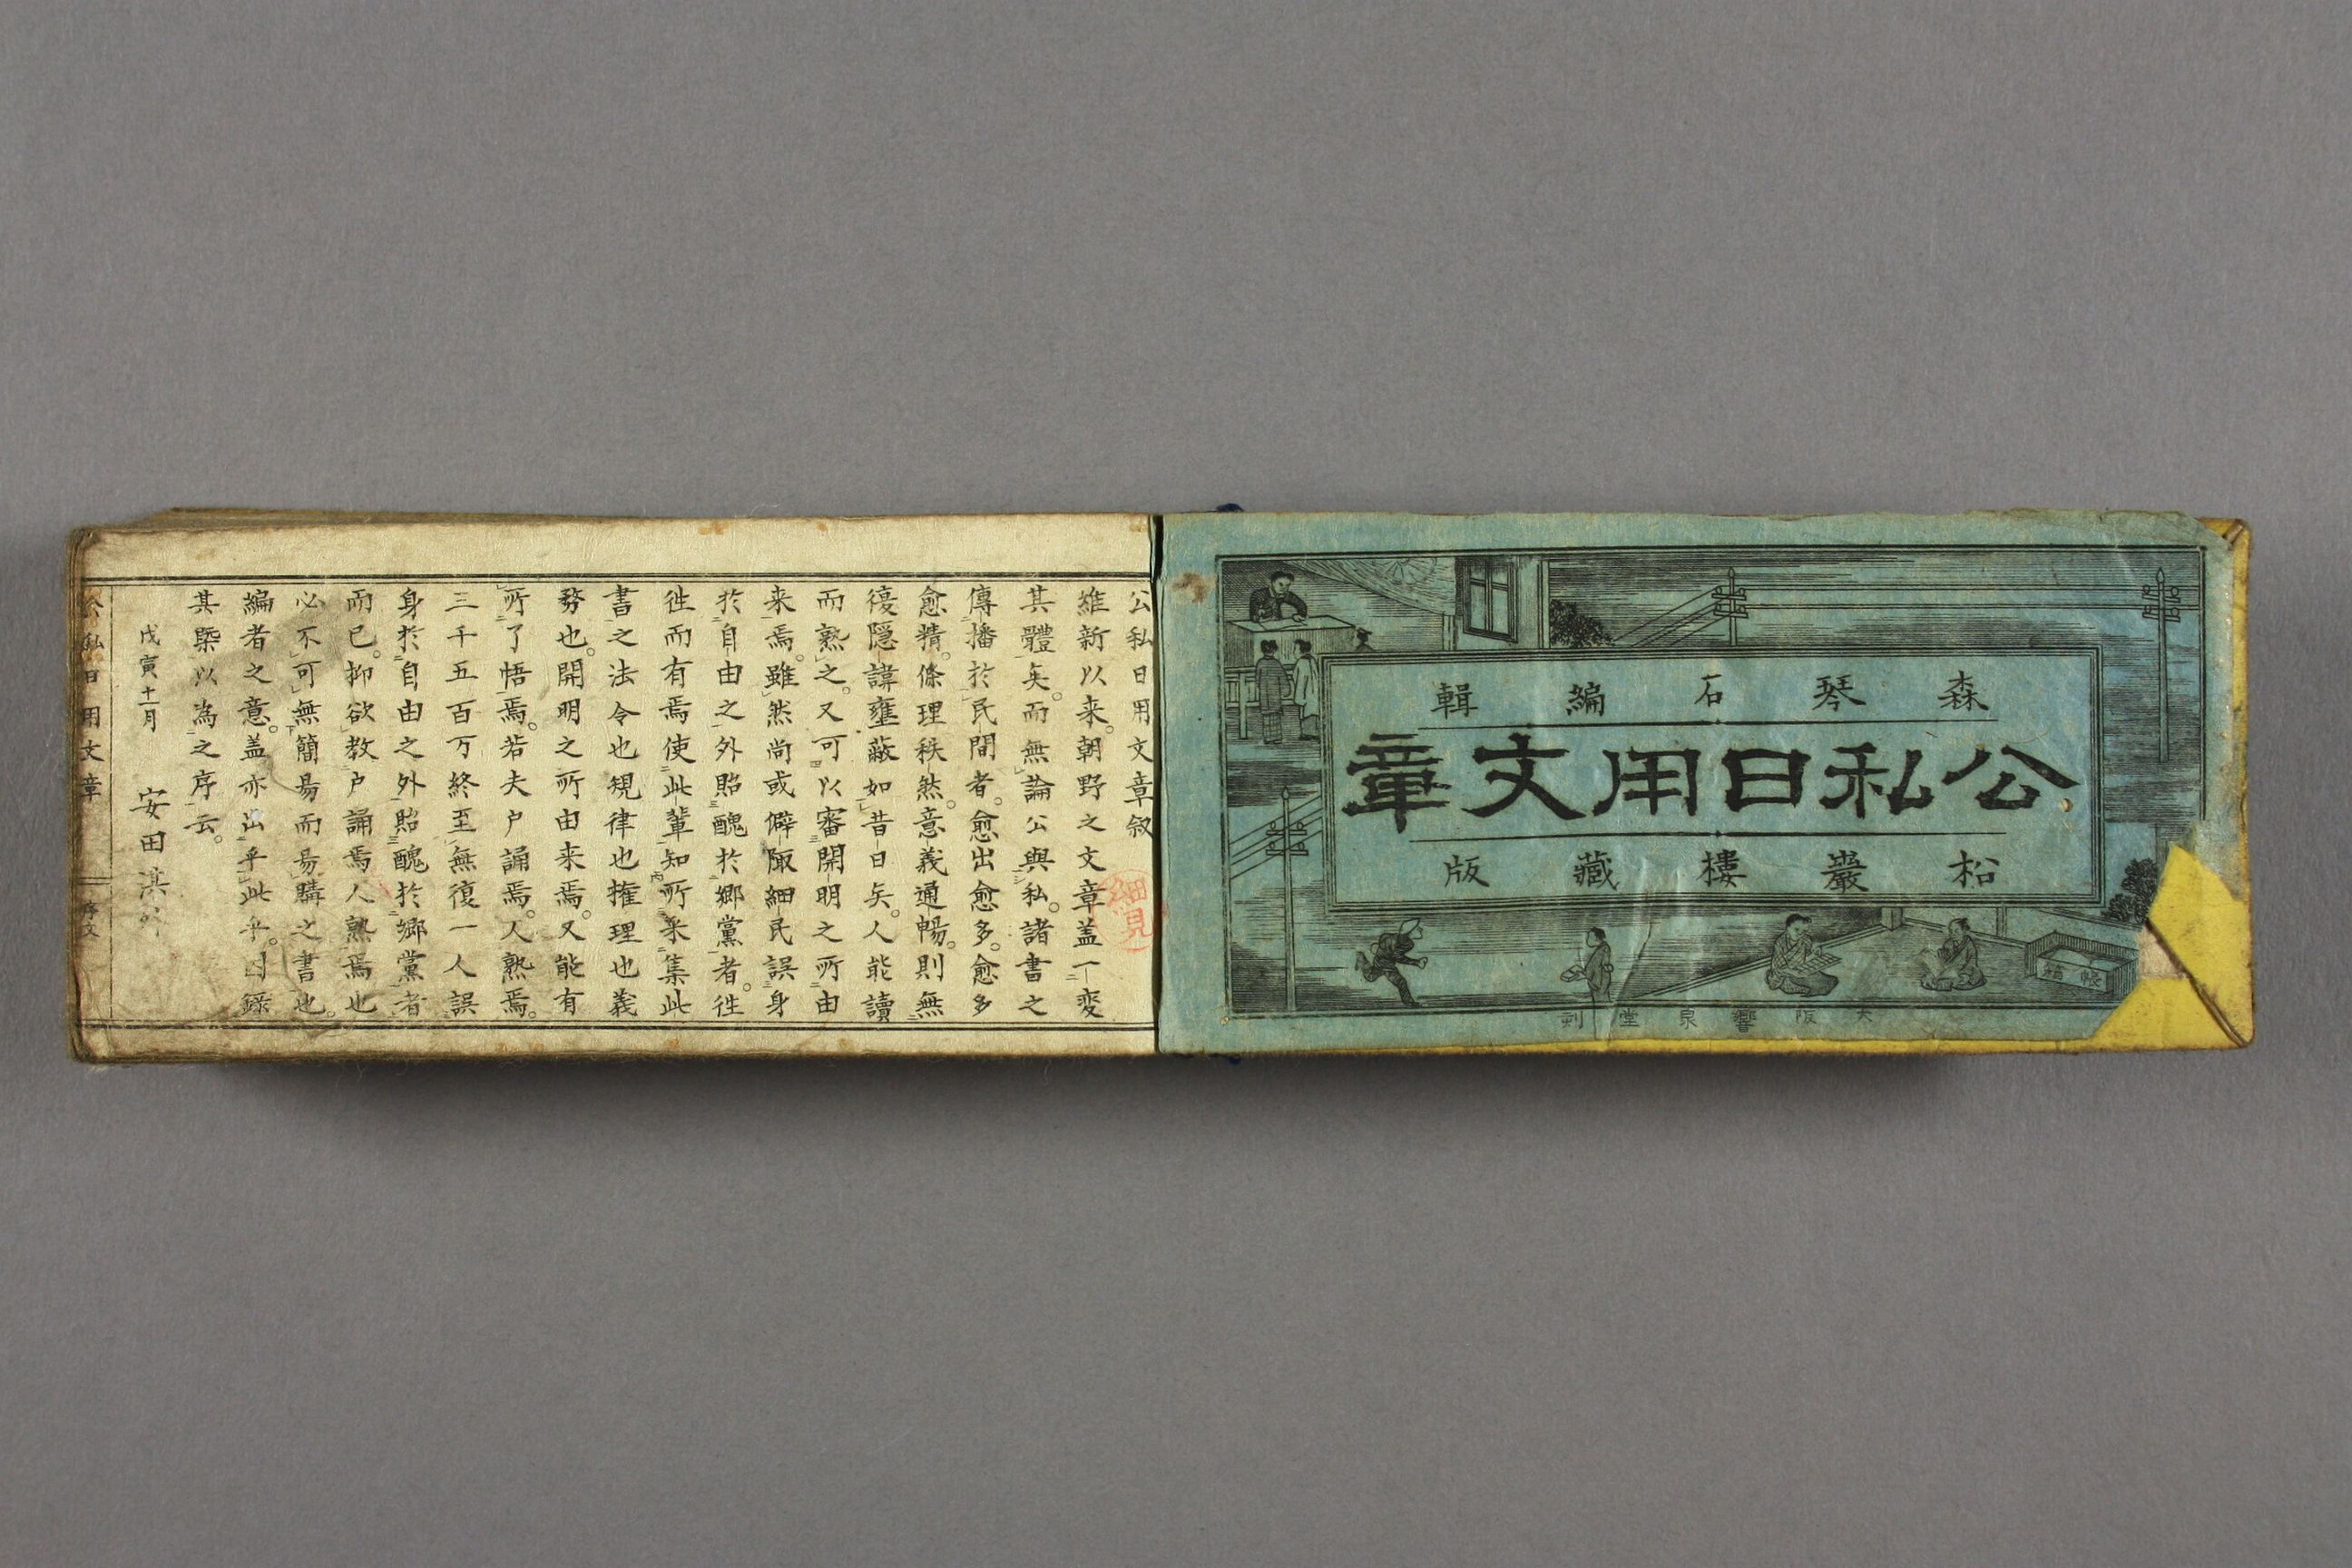 森琴石編輯
公私日用文章
松巖樓藏版
大阪響泉堂刻
帳箱
公私日用文章叙
維新以来。朝野之文章盖一変
其體矣。而無論公與私。諸書之
傳播於民間者。愈出愈多。愈多
愈精。條理秩然。意義通暢。則無
復隠諱壅蔽如昔日矣。人能讀
而熟之。又可以審開明之所由
来焉。雖然尚或僻陬細民誤身
於自由之外貽醜於郷黨者。徃
徃而有焉使此輩知所采集此
書之法令也規律也権理也義
務也。開明之所由来焉。又能有
所了悟焉。若夫戸誦焉。人熟焉。
三千五百万終至無復一人誤
身於自由之外貽醜於郷黨者
而已。抑欲教戸誦焉人熟焉也
必不可無簡易而易購之書也。
編者之意。盖亦出乎此乎。因録
其槩以為之序云。
戊寅十一月
安田
公私日用文章
序文
細見